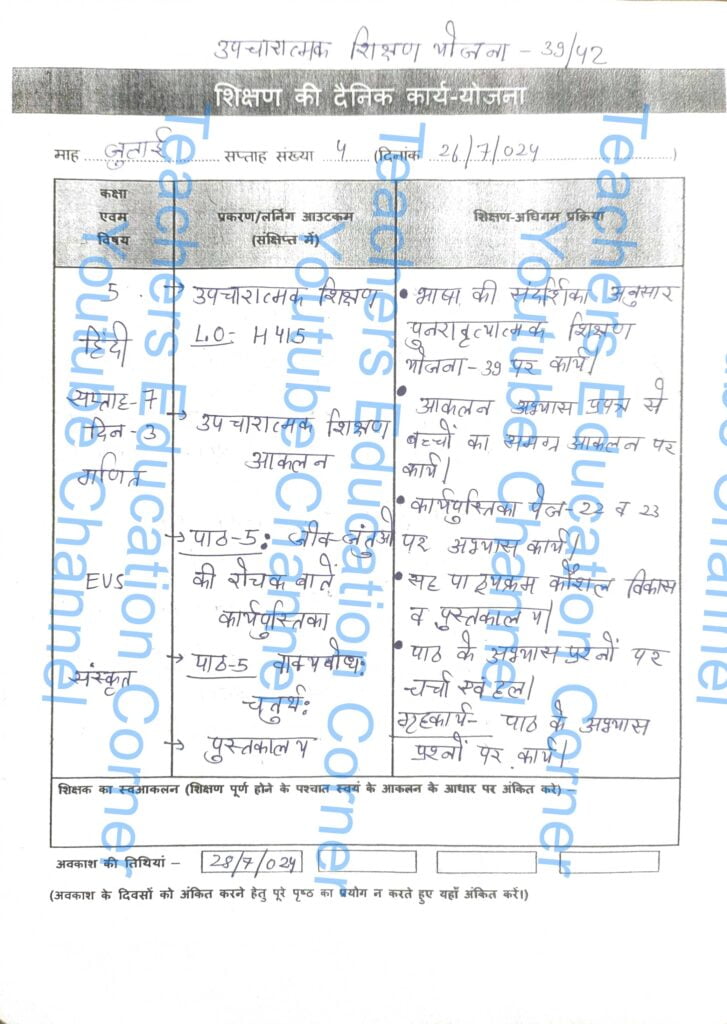 उपचारात्मक शिक्षण योजना - 39/42
शिक्षण की दैनिक कार्य-योजना
माह जुलाई सप्ताह संख्या 4 (दिनांक 26/7/024)
कक्षा
एवम
विषय
प्रकरण/लर्निंग आउटकम
(संक्षिप्त में)
शिक्षण-अधिगम प्रक्रिया
5
हिंदी
सप्ताह-7
दिन-3
गणित
EVS
संस्कृत
→ उपचारात्मक शिक्षण
L.O- H 415
→ उपचारात्मक शिक्षण
आकलन
→ पाठ-5: जीव-जंतुओं
की रोचक बातें
कार्यपुस्तिका
→ पाठ-5 वाक्यबोधः
चतुर्थः
→ पुस्तकालय
• भाषा की संदर्शिका अनुसार
पुनरावृत्यात्मक शिक्षण
योजना-39 पर कार्य।
• आकलन अभ्यास प्रपत्र से
बच्चों का समग्र आकलन पर
कार्य।
• कार्यपुस्तिका पेज-22 व 23
पर अभ्यास कार्य।
• सह पाठ्यक्रम कौशल विकास
व पुस्तकालय।
• पाठ के अभ्यास प्रश्नों पर
चर्चा एवं हल।
गृहकार्य- पाठ के अभ्यास
प्रश्नों पर कार्य।
शिक्षक का स्वआकलन (शिक्षण पूर्ण होने के पश्चात स्वयं के आकलन के आधार पर अंकित करे) -
अवकाश की तिथियां - 28/7/024
(अवकाश के दिवसों को अंकित करने हेतु पूरे पृष्ठ का प्रयोग न करते हुए यहाँ अंकित करें।)
Teachers Education Corner
Youtube Channel
Teachers Education Corner
Youtube Channel
Teachers Education Corner
Youtube Channel